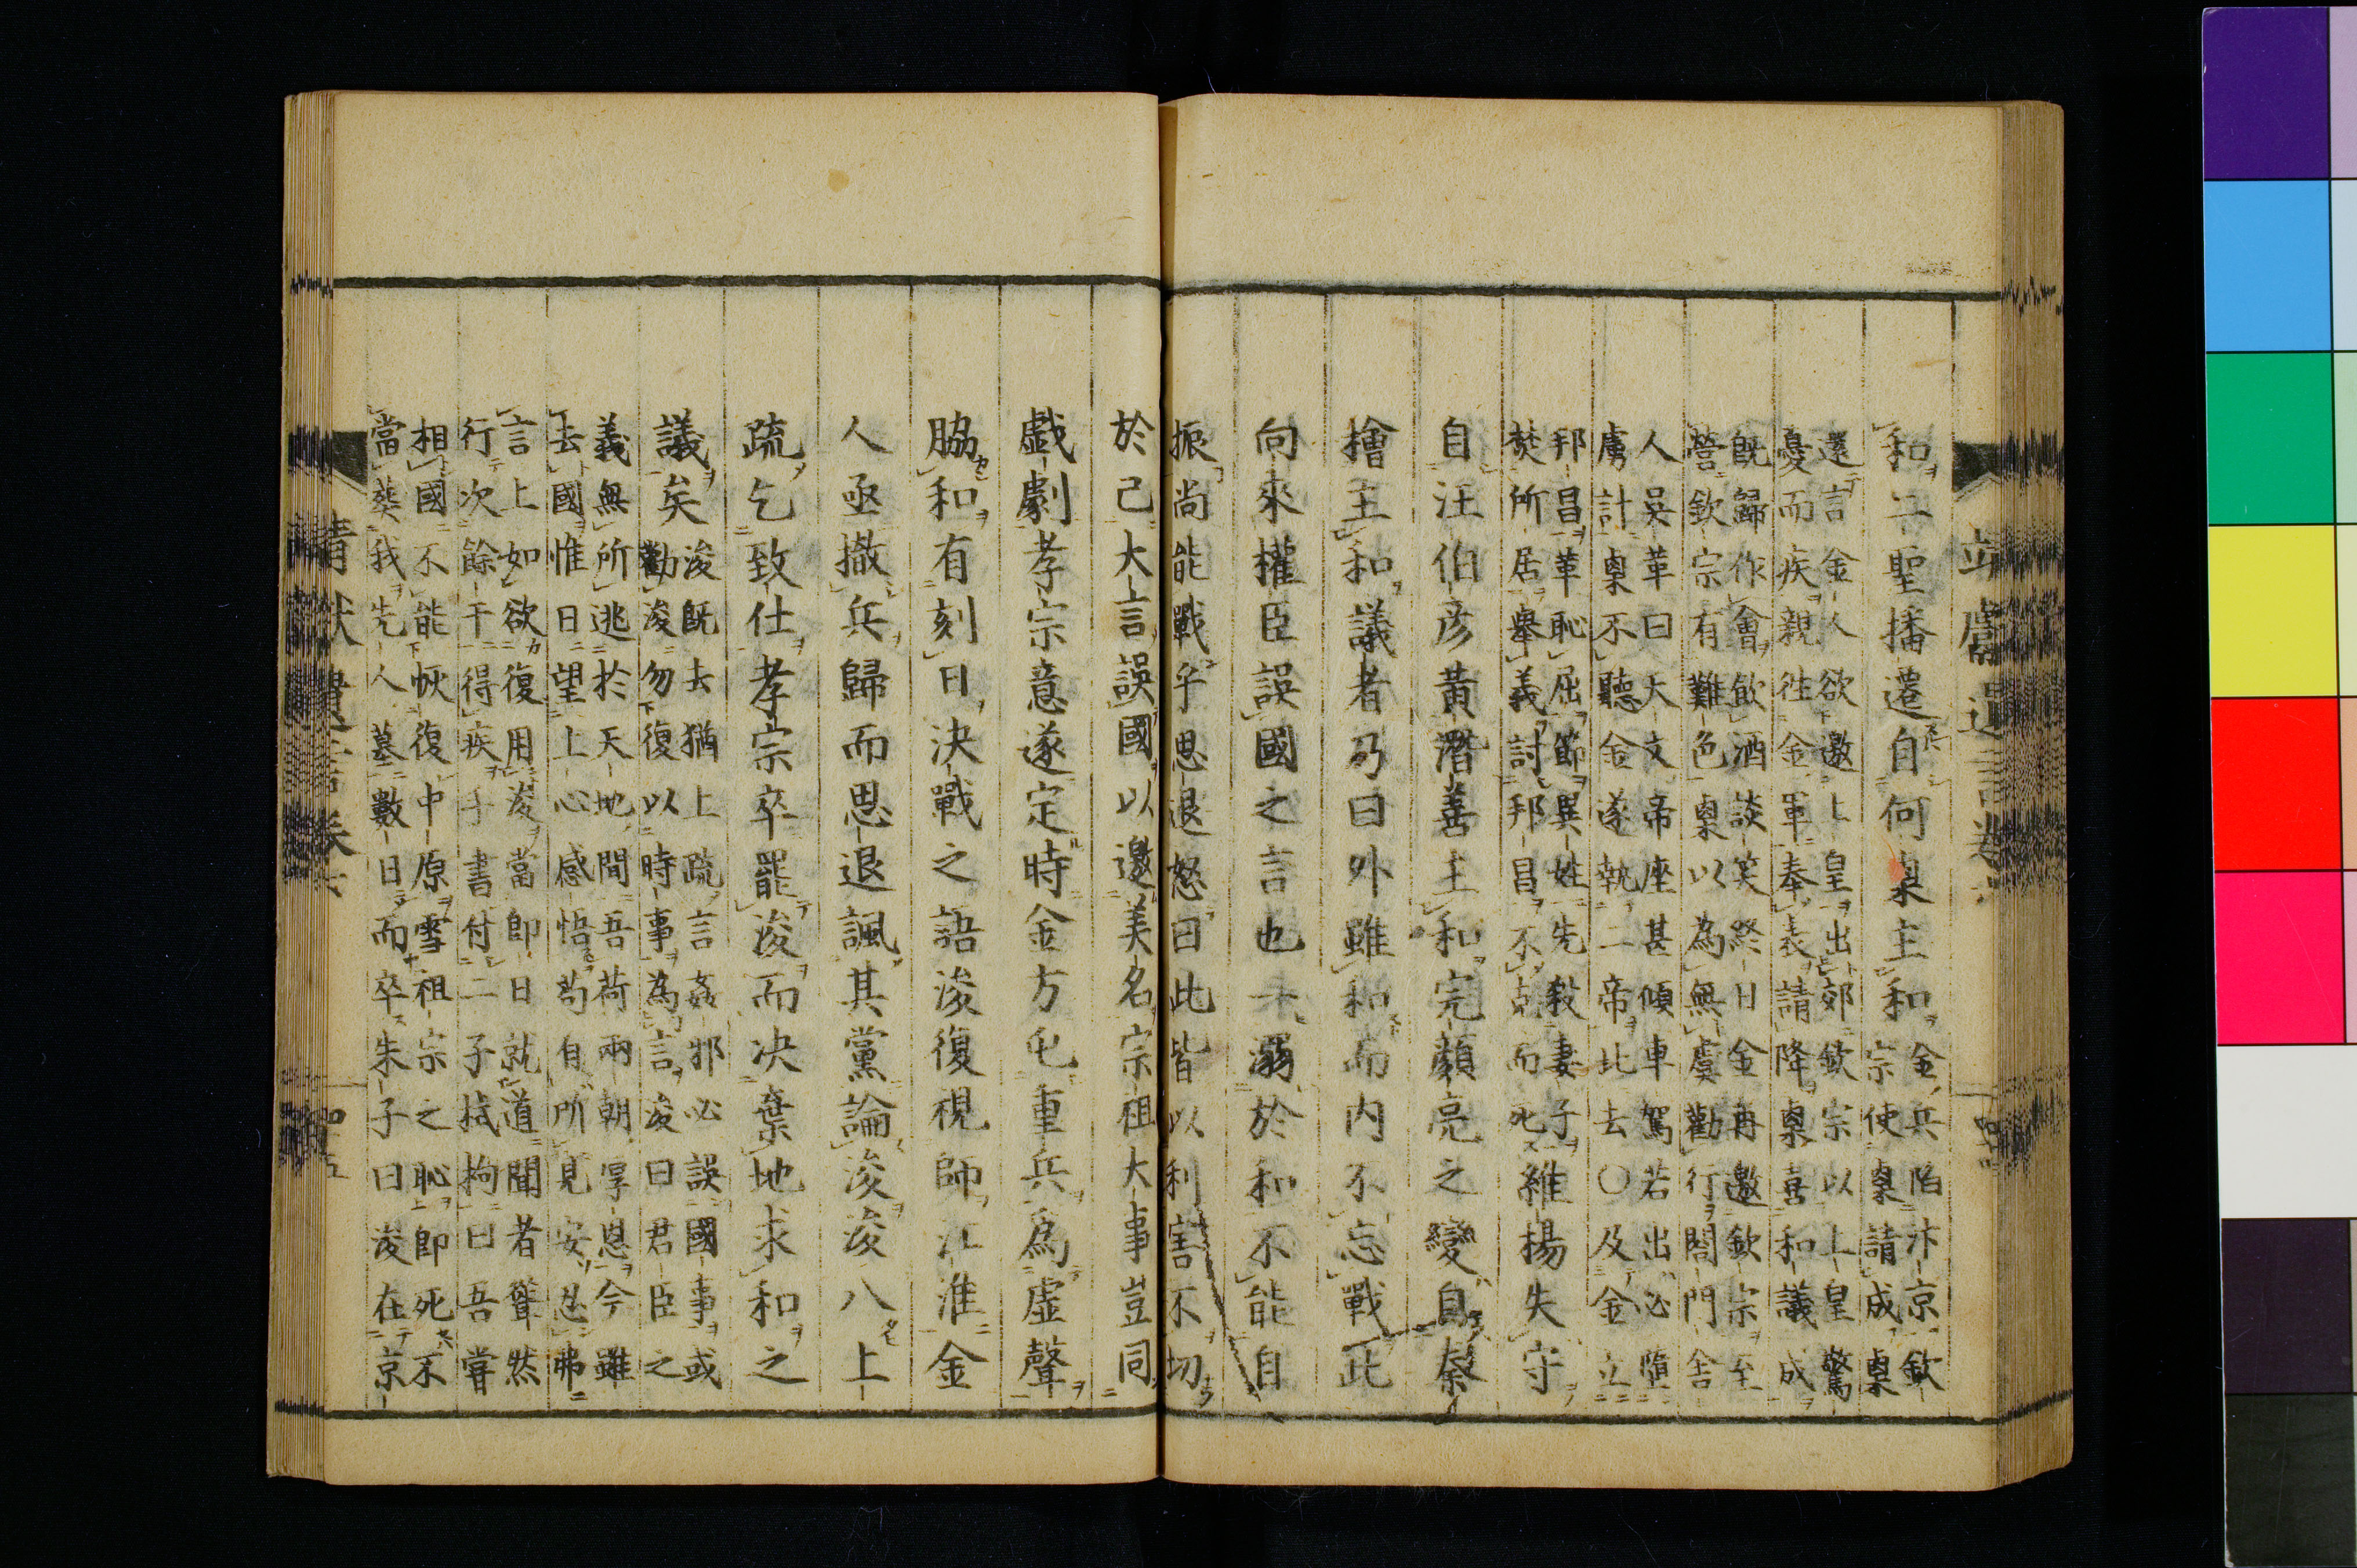 和二聖播遷自何㮚主和金兵陷汴京欽
宗使㮚請成㮚
還言金人欲邀上皇出郊欽宗以上皇驚
憂而疾親徃金軍奉表請降㮚喜和議成
旣歸作會飮酒談笑終日金再邀欽宗至
營欽宗有難色㮚以為無虞勸行閤門舎
人吳革曰大文帝座甚傾車駕若出必墮
虜計㮚不聽金遂執二帝北去〇及金立
邦昌革恥屈節異姓先殺妻子
焚所居舉義討邦昌不克而死維揚失守
自汪伯彦黃潛善主和完顏亮之變自秦
檜主和議者乃曰外雖和而内不忘戰此
向來權臣誤國之言也一溺於和不能自
振尚能戰乎思退怒曰此皆以利害不切
於己大言誤國以邀美名宗社大事豈同
戲劇孝宗意遂定時金方屯重兵爲虚聲
脇和有刻日決戰之語浚復視師江淮金
人亟撤兵歸而思退諷其黨論浚浚八上
疏乞致仕孝宗卒罷浚而決棄地求和之
議矣浚旣去猶上疏言姦邪必誤國事或
勸浚勿復以時事為言浚曰君臣之
義無所逃於天地間吾荷兩朝厚恩今雖
去國惟日望上心感悟苟有所見安忍弗
言上如欲復用浚當即日就道聞者聳然
行次餘干得疾手書付二子栻拘曰吾嘗
相國不能恢復中原雪祖宗之恥即死不
當葬我先人墓數日而卒朱子曰浚在京